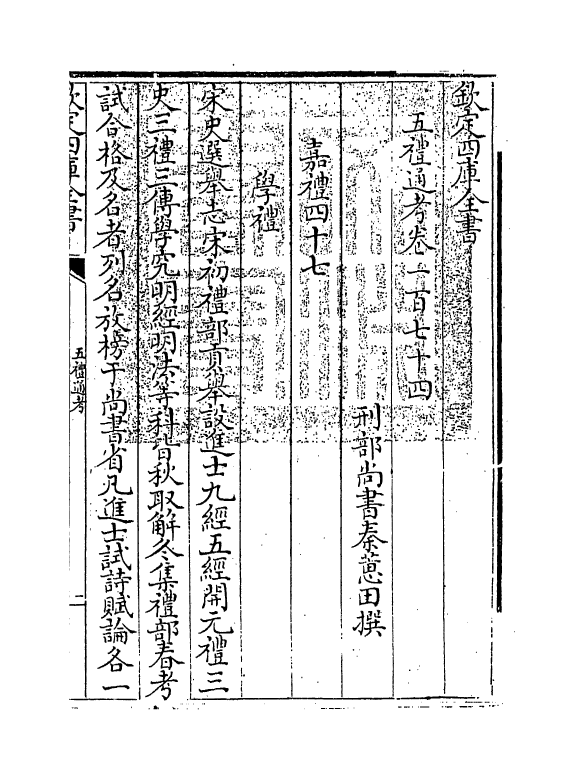 欽定四庫全書
五禮通考卷一百七十四
刑部尚書秦蕙田撰
嘉禮四十七
學禮
宋史選舉志宋初禮部貢舉設進士九經五經開元禮三
史三禮三傳學究明經明法等科皆秋取解冬集禮部春考
試合格及名者列名放榜于尚書省凡進士試詩賦論各一
欽定四庫全書
五禮通考